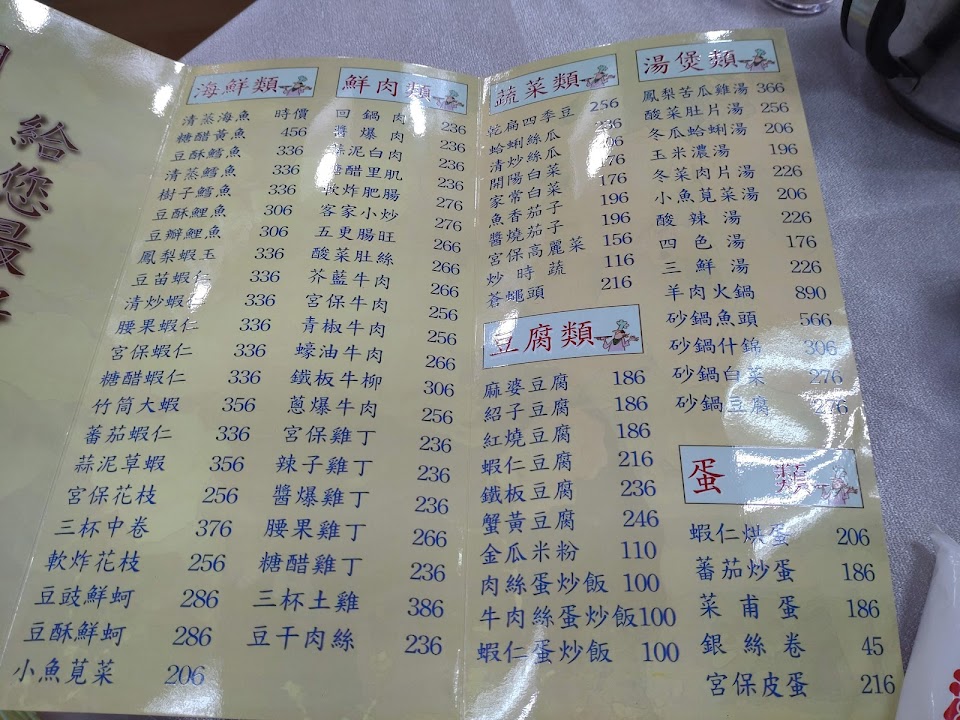 給您最
海鮮類
清蒸海魚 時價
糖醋黃魚 456
豆酥鱈魚 336
清蒸鱈魚 336
樹子鱈魚 336
豆酥鯉魚 306
豆瓣鯉魚 306
鳳梨蝦玉 336
豆苗蝦仁 336
清炒蝦仁 336
腰果蝦仁 336
宮保蝦仁 336
糖醋蝦仁 336
竹筒大蝦 356
蕃茄蝦仁 336
蒜泥草蝦 356
宮保花枝 256
三杯中卷 376
軟炸花枝 256
豆豉鮮蚵 286
豆酥鮮蚵 286
小魚莧菜 206
鮮肉類
回鍋肉 236
醬爆肉 236
蒜泥白肉 236
糖醋里肌 236
軟炸肥腸 276
客家小炒 276
五更腸旺 266
酸菜肚絲 266
芥藍牛肉 266
宮保牛肉 256
青椒牛肉 256
蠔油牛肉 266
鐵板牛柳 306
蔥爆牛肉 256
宮保雞丁 236
辣子雞丁 236
醬爆雞丁 236
腰果雞丁 266
糖醋雞丁 236
三杯土雞 386
豆干肉絲 236
蔬菜類
乾扁四季豆 256
蛤蜊絲瓜 236
清炒絲瓜 206
開陽白菜 176
家常白菜 176
魚香茄子 196
醬燒茄子 196
宮保高麗菜 156
炒時蔬 116
蒼蠅頭 216
豆腐類
麻婆豆腐 186
紹子豆腐 186
紅燒豆腐 186
蝦仁豆腐 216
鐵板豆腐 236
蟹黃豆腐 246
金瓜米粉 110
肉絲蛋炒飯 100
牛肉絲蛋炒飯100
蝦仁蛋炒飯 100
湯煲類
鳳梨苦瓜雞湯 366
酸菜肚片湯 256
冬瓜蛤蜊湯 206
玉米濃湯 196
冬菜肉片湯 226
小魚莧菜湯 206
酸辣湯 226
四色湯 176
三鮮湯 226
羊肉火鍋 890
砂鍋魚頭 566
砂鍋什錦 306
砂鍋白菜 276
砂鍋豆腐 276
蛋類
蝦仁烘蛋 206
蕃茄炒蛋 186
菜甫蛋 186
銀絲卷 45
宮保皮蛋 216